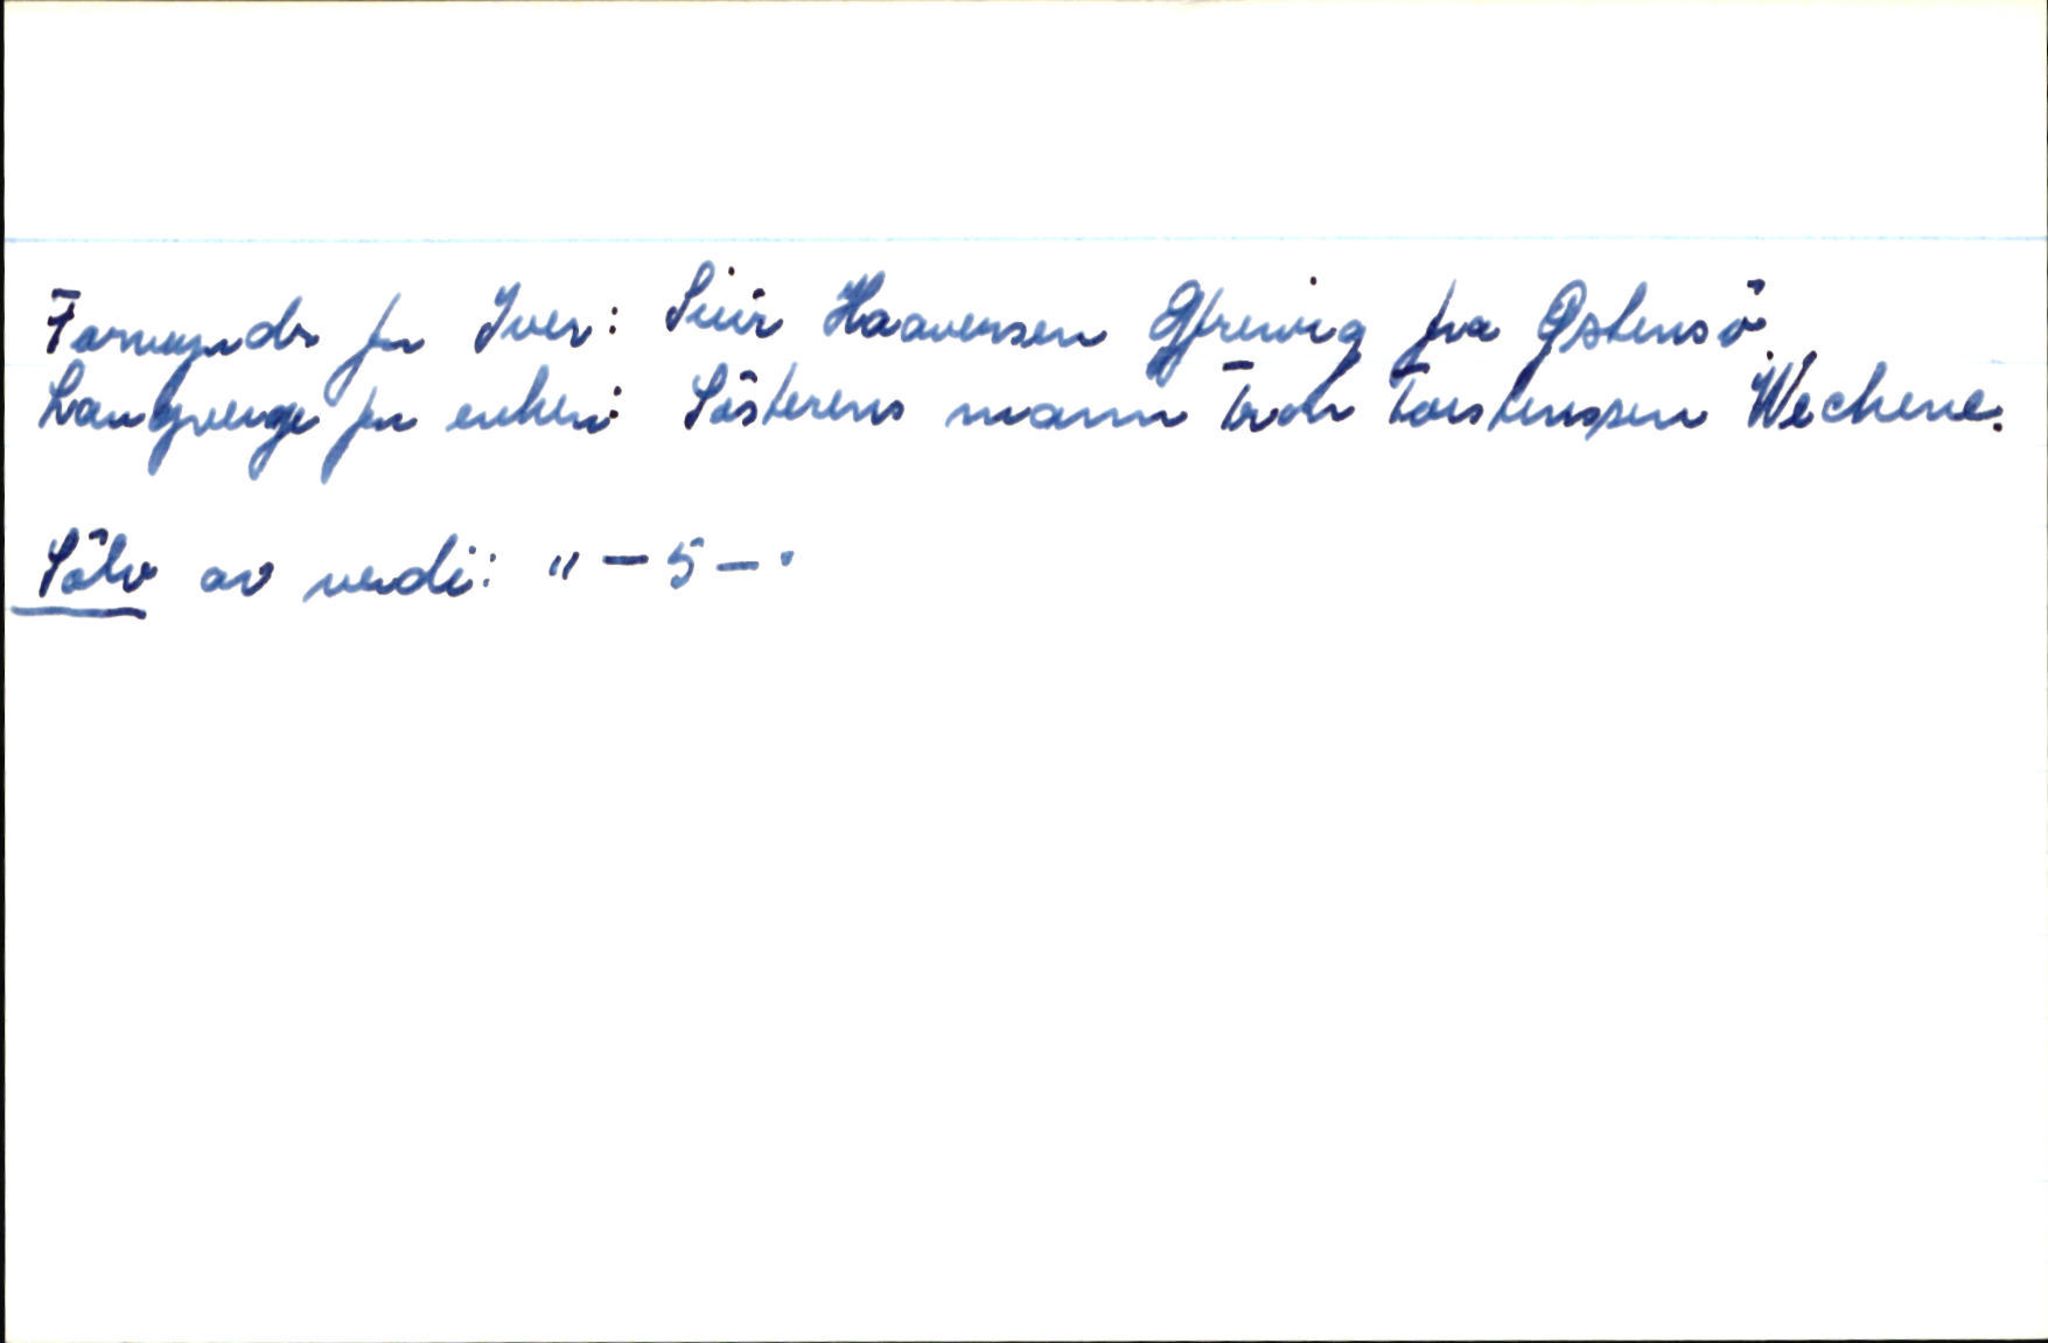 Formynder for Iver: Siur Haavensen Gjrevig fra Østensö.
Laugverge for enken: Sösterens mann Troh Torstenssen Wechene.
Sölv av verdi: " - 5 - "